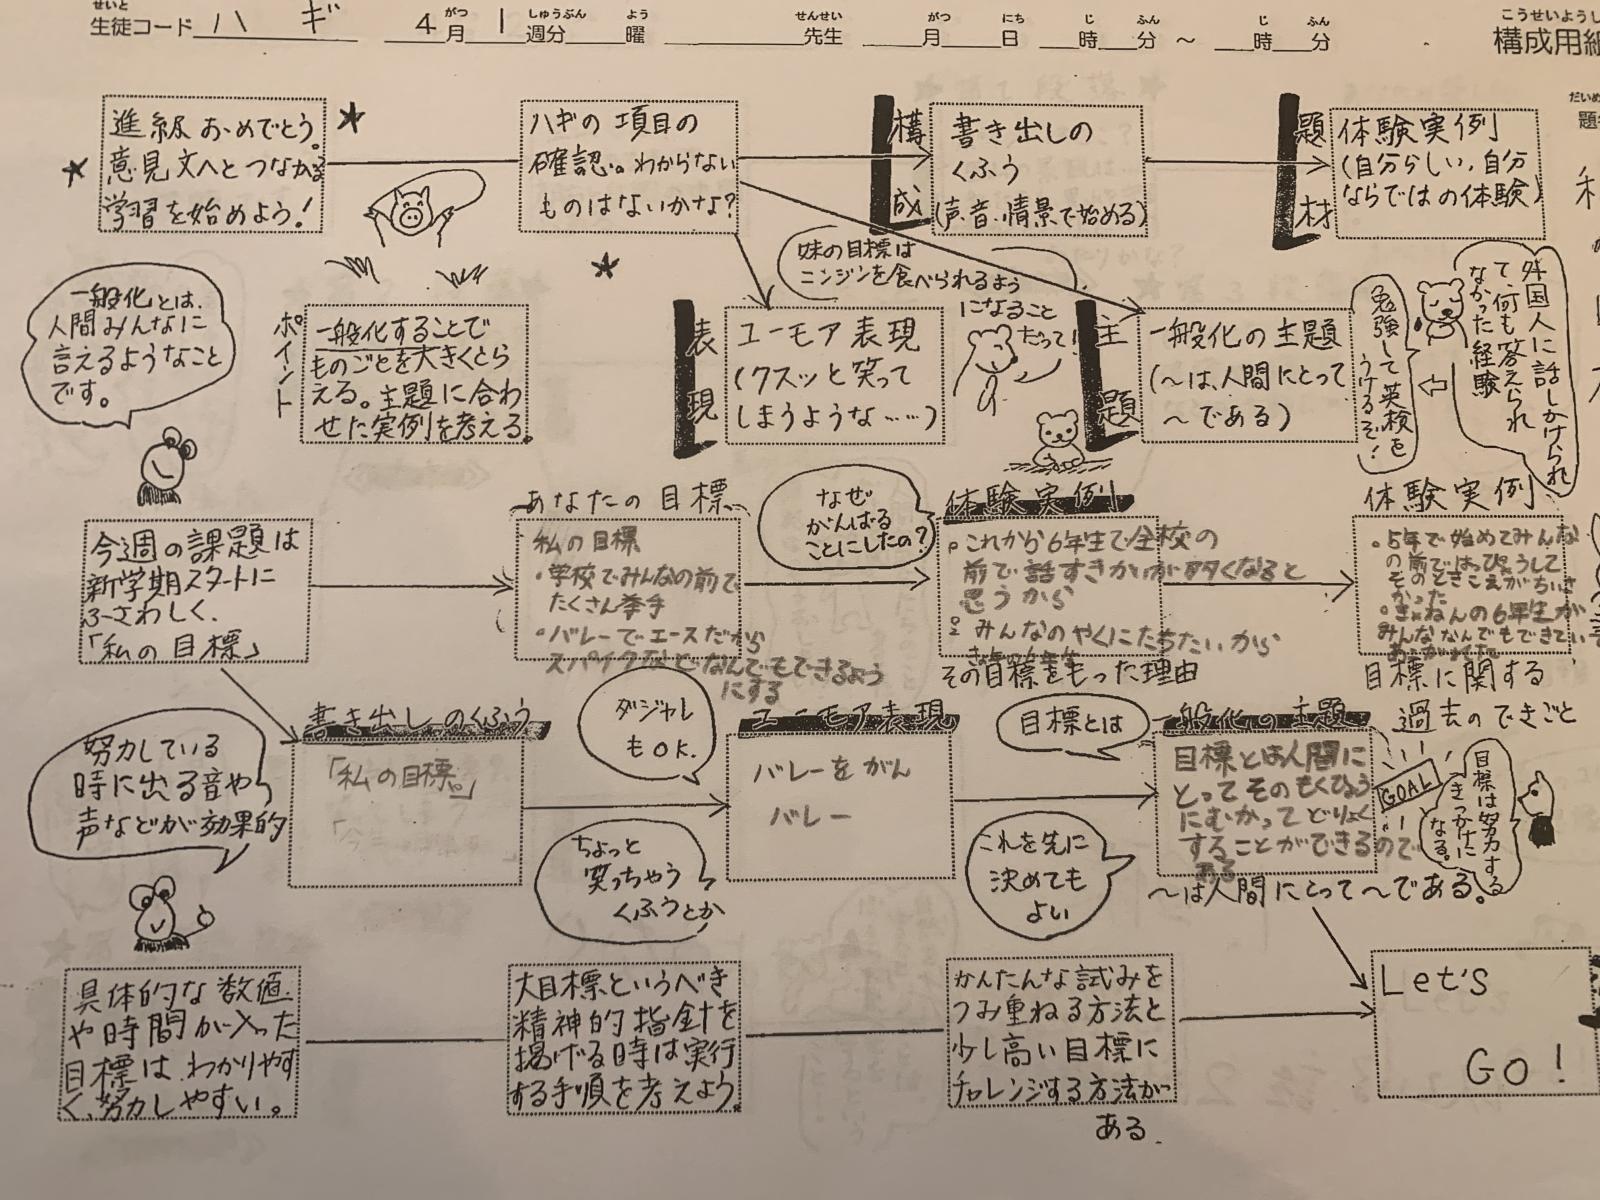 せいと がつ しゅうぶん よう せんせい がつ にち じ ふん じ ふん こうせいようし
生徒コード ハ ギ 4月 1週分 曜 先生 月 日 時 分 ～ 時 分 構成用紙
だいめ
題
進級おめでとう。
意見文へとつながる
学習を始めよう!
ハギの項目の
確認。わからない
ものはないかな?
構成
書き出しの
くふう
(声、音、情景で始める)
題材
体験実例
(自分らしい、自分
ならではの体験)
一般化とは、
人間みんなに
言えるようなこと
です。
ポイント
一般化することで
ものごとを大きくとら
える。主題に合わ
せた実例を考える。
表現
ユーモア表現
(クスッと笑って
しまうような……)
妹の目標は
ニンジンを食べられるよう
になること
だって!
主題
一般化の主題
(～は、人間にとって
～である)
外国人に話しかけられ
て、何も答えられ
なかった経験
勉強して英検を
うけるぞ!
今週の課題は
新学期スタートに
ふさわしく、
「私の目標」
あなたの目標
私の目標
・学校でみんなの前で
たくさん挙手
・バレーでエースだから
スパイクなどなんでもできるよう
にする
なぜ
がんばる
ことにしたの?
体験実例
これから6年生で全校の
前で話すきかいが多くなると
思うから
みんなのやくにたちたいから
その目標をもった理由
体験実例
・5年で始めてみんな
の前ではっぴょうして
そのときこえがちいさ
かった
・きょねんの6年生が
みんななんでもできてい
目標に関する
過去のできごと
努力している
時に出る音や
声などが効果的
書き出しのくふう
「私の目標。」
ダジャレ
もOK.
ユーモア表現
バレーをがん
バレー
ちょっと
笑っちゃう
くふうとか
目標とは
一般化の主題
目標とは人間に
とってそのもくひょう
にむかってどりょく
することができるので
ある
～は人間にとって～である。
これを先に
決めても
よい
GOAL
目標は努力する
きっかけに
なる。
具体的な数値
や時間が入った
目標は、わかりやす
く、努力しやすい。
大目標というべき
精神的指針を
掲げる時は実行
する手順を考えよう。
かんたんな試みを
つみ重ねる方法と
少し高い目標に
チャレンジする方法が
ある.
Let's
GO!